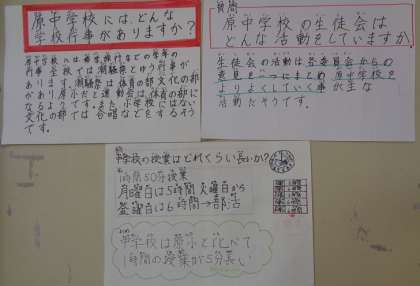 原中学校には、どんな
学校行事がありますか?
原中学校には修学旅行などの学年の
行事、全校では潮騒祭とゆう行事が
あります。潮騒祭は体育の部文化の部
があり原小だと運動会は、体育の部に
なるようです。また、小学校にはない
文化の部では合唱などをするそう
です。
質問
原中学校の生徒会は
どんな活動をしていますか
生徒会の活動は各委員会からの
意見を一つにまとめ原中学校を
よりよくしていく事が主な
活動だそうです。
中学校の授業はどれくらい長いか?
1時間50分授業
月曜日は5時間 火曜日から
金曜日は6時間→部活
中学校は原小と比べて
1時間の授業が5分長い